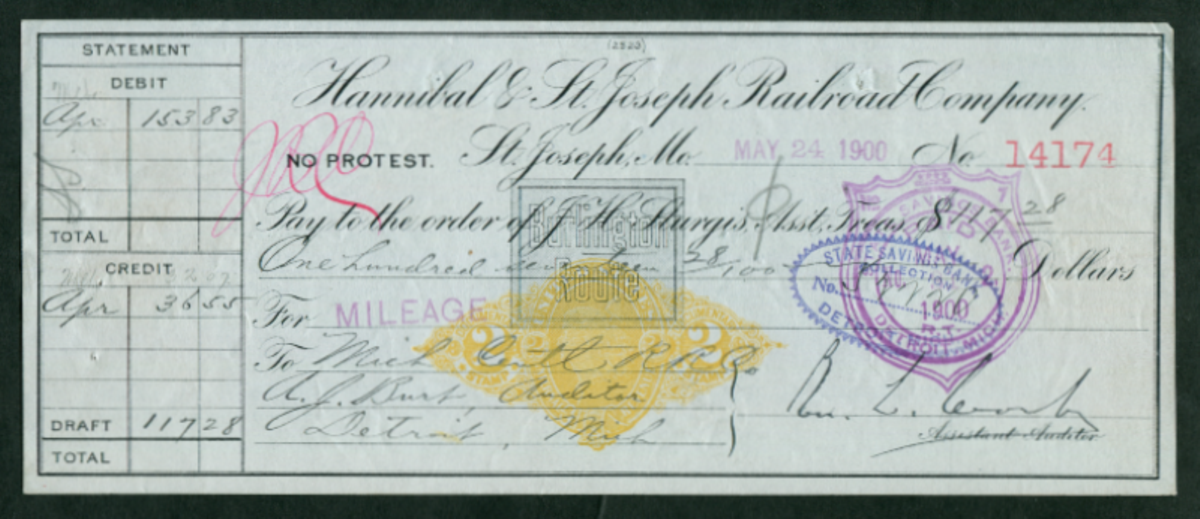 (2520)
STATEMENT
DEBIT
Apr 153 83
TOTAL
CREDIT
Apr 36 55
DRAFT 117 28
TOTAL
Hannibal & St. Joseph Railroad Company.
NO PROTEST. St. Joseph, Mo. MAY 24 1900 No. 14174
Pay to the order of J. H. Sturgis, Asst. Treas. $ 117 28
One hundred seventeen 28/100 Dollars
Burlington
Route
For MILEAGE
2 2
To Mich Centl R.R. Co
A. J. Burt, Auditor
Detroit, Mich
Assistant Auditor
STATE SAVINGS BANK
COLLECTION
No.
DETROIT
1900
R.T.
DETROIT, MICH